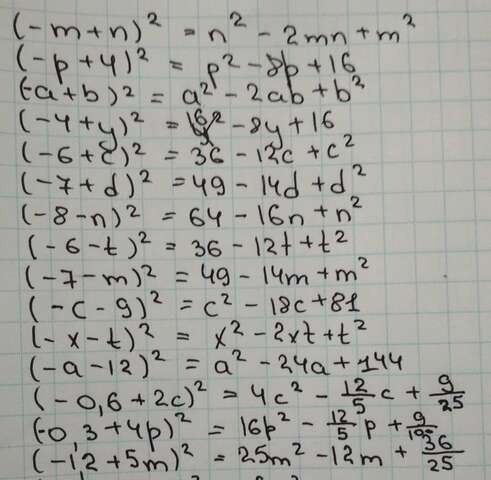 (-m+n)² = n² - 2mn + m²
(-p+4)² = p² - 8p + 16
(-a+b)² = a² - 2ab + b²
(-4+y)² = y² - 8y + 16
(-6+c)² = 36 - 12c + c²
(-7+d)² = 49 - 14d + d²
(-8-n)² = 64 - 16n + n²
(-6-t)² = 36 - 12t + t²
(-7-m)² = 49 - 14m + m²
(-c-9)² = c² - 18c + 81
(-x-t)² = x² - 2xt + t²
(-a-12)² = a² - 24a + 144
(-0,6+2c)² = 4c² - 12/5 c + 9/25
(-0,3+4p)² = 16p² - 12/5 p + 9/100
(-1,2+5m)² = 25m² - 12m + 36/25